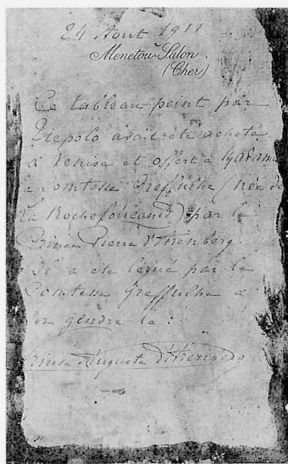 24 Aout 1911
Menetou-Salon.
(Cher)
Ce tableau peint par
Tiepolo avait été acheté
à Venise et offert à Madame
la Comtesse Greffulhe (née de
La Rochefoucauld) par le
Prince Pierre d'Arenberg.
Il a été légué par la
Comtesse Greffulhe à
son gendre le :
Prince Auguste d'Arenberg